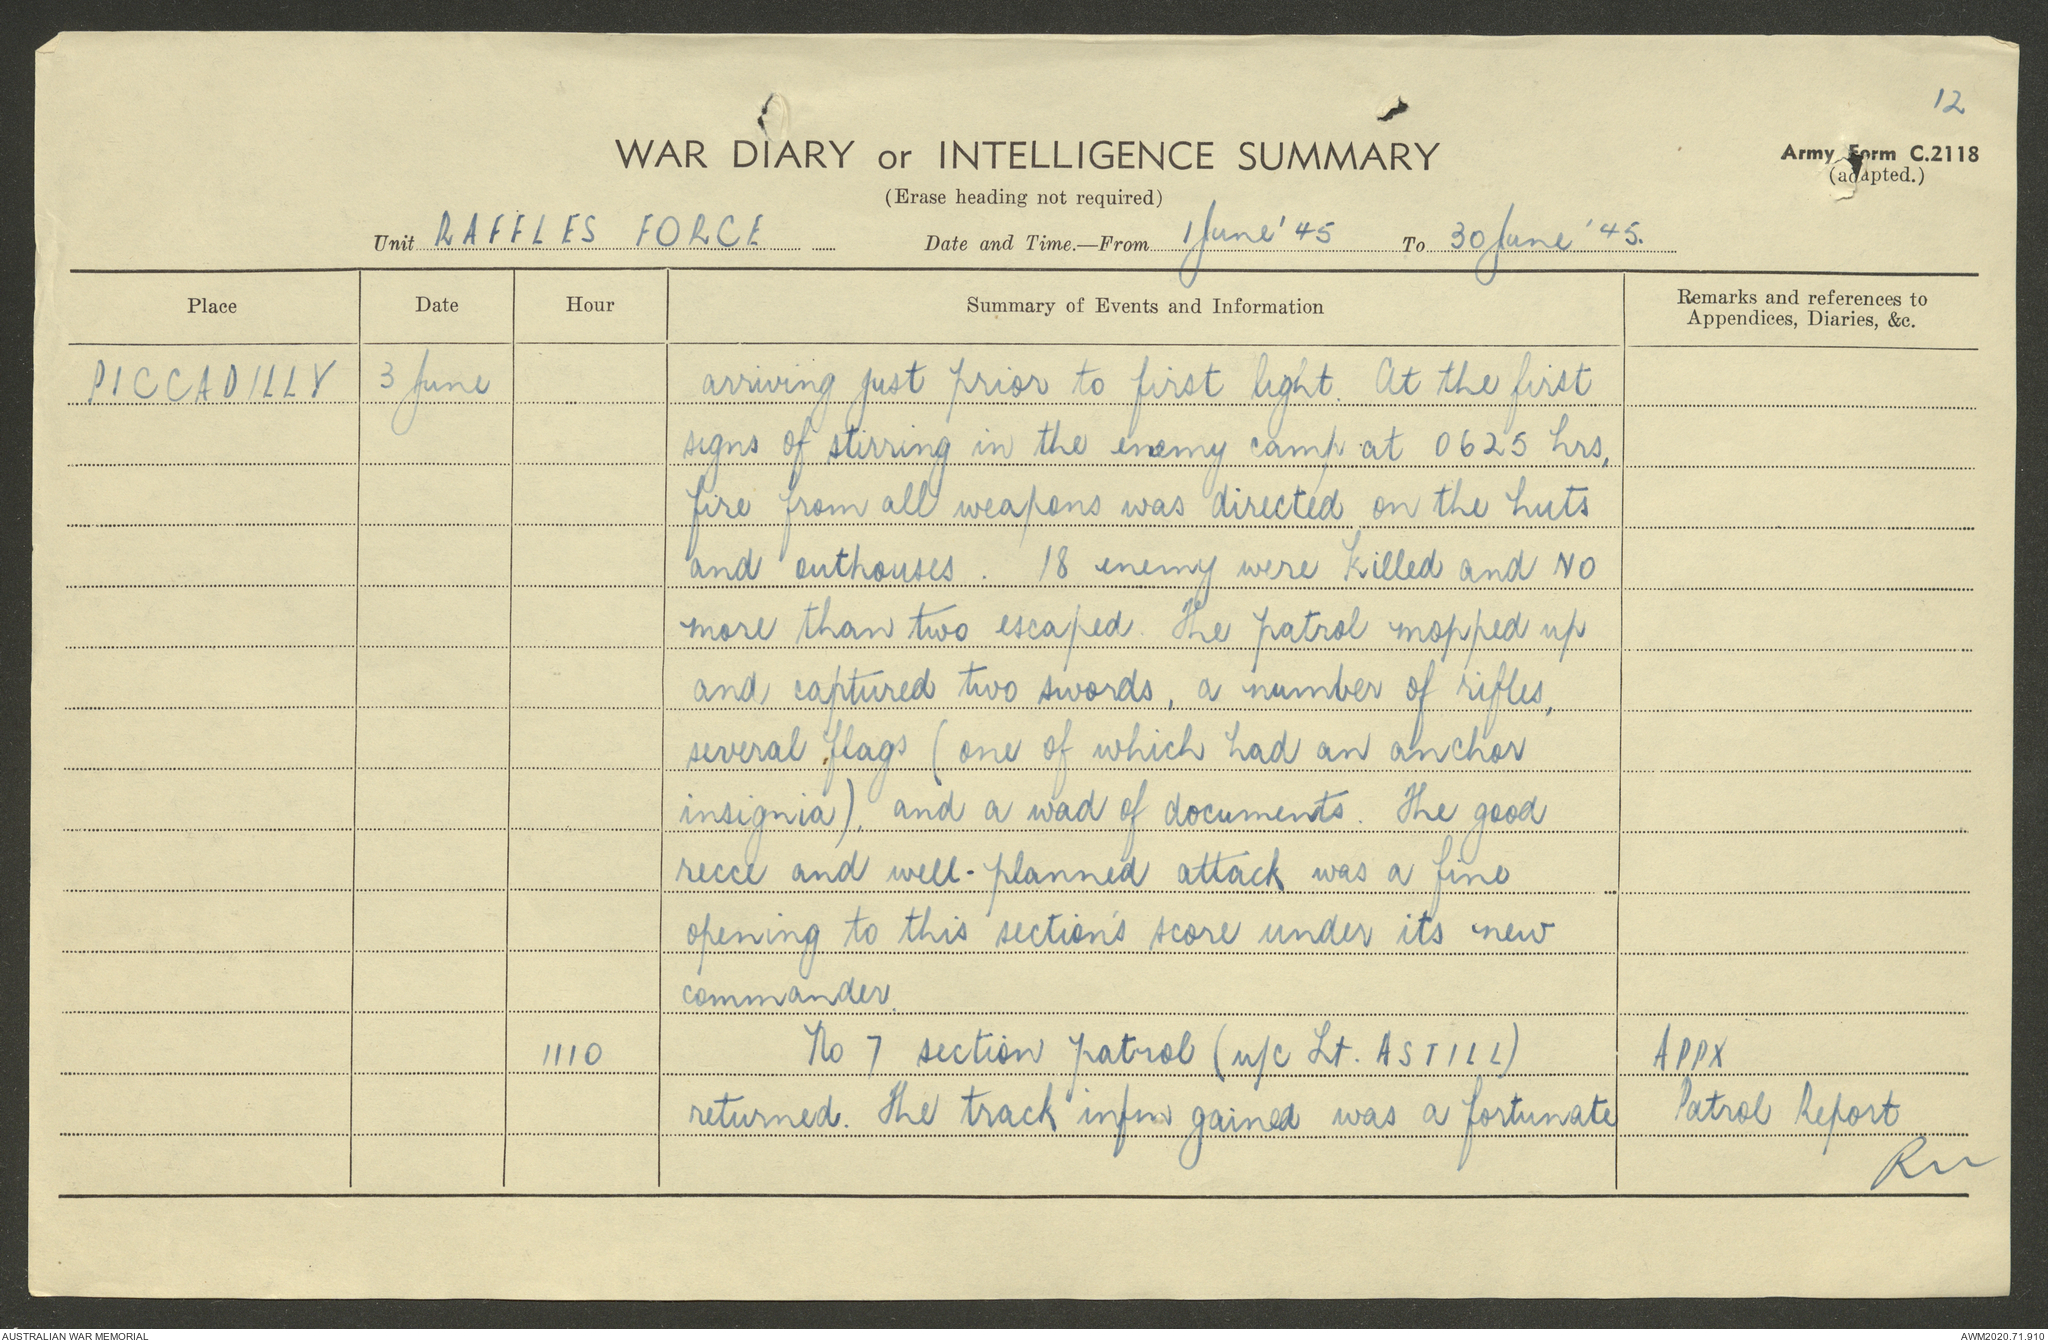 12
WAR DIARY or INTELLIGENCE SUMMARY
Army Form C.2118
(adapted.)
(Erase heading not required)
Unit RAFFLES FORCE Date and Time.—From 1 June '45 To 30 June '45.
Place Date Hour Summary of Events and Information Remarks and references to
Appendices, Diaries, &c.
PICCADILLY 3 June arriving just prior to first light. At the first
signs of stirring in the enemy camp at 0625 hrs,
fire from all weapons was directed on the huts
and outhouses. 18 enemy were killed and NO
more than two escaped. The patrol mopped up
and captured two swords, a number of rifles,
several flags (one of which had an anchor
insignia), and a wad of documents. The good
recce and well-planned attack was a fine
opening to this section's score under its new
commander.
1110 No 7 section patrol (u/c Lt. ASTILL) APPX
returned. The track infm gained was a fortunate Patrol Report
AUSTRALIAN WAR MEMORIAL
AWM2020.71.910